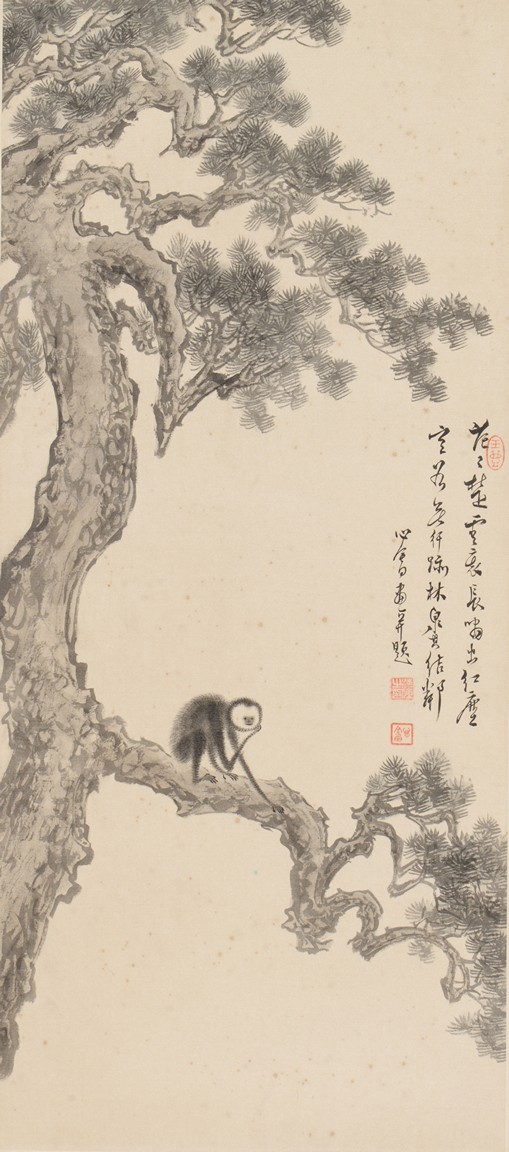 茫〻楚雲裏長嘯出紅塵
空谷無行跡林泉結鄰
心畬畫并題